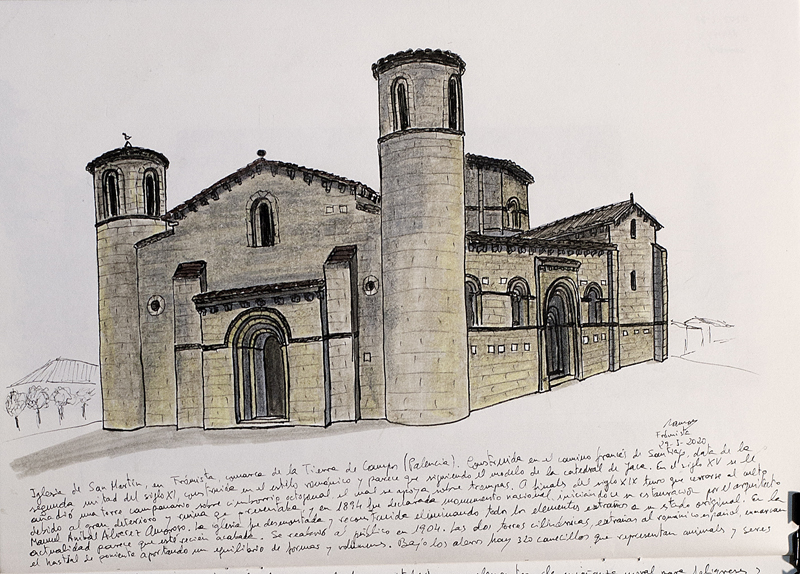 Ramos
Frómista
29-3-2020
Iglesia de San Martín, en Frómista, comarca de la Tierra de Campos (Palencia). Construida en el camino francés de Santiago, data de la
segunda mitad del siglo XI, construida en el estilo románico y parece que siguiendo el modelo de la catedral de Jaca. En el siglo XV se le
añadió una torre campanario sobre cimborrio octogonal el cual se apoya sobre trompas. A finales del siglo XIX tuvo que cerrarse al culto
debido al gran deterioro y ruina que presentaba, y en 1894 fue declarada monumento nacional, iniciándose su restauración por el arquitecto
Manuel Aníbal Álvarez Amoroso, la iglesia fue desmontada y reconstruida eliminando todo los elementos extraños a su estado original. En la
actualidad parece que esté recién acabada. Se reabrió al público en 1904. Las dos torres cilíndricas, extrañas al románico español, enmarcan
el hastial de poniente aportando un equilibrio de formas y volúmenes. Bajo los aleros hay 320 canecillos que representan animales y seres